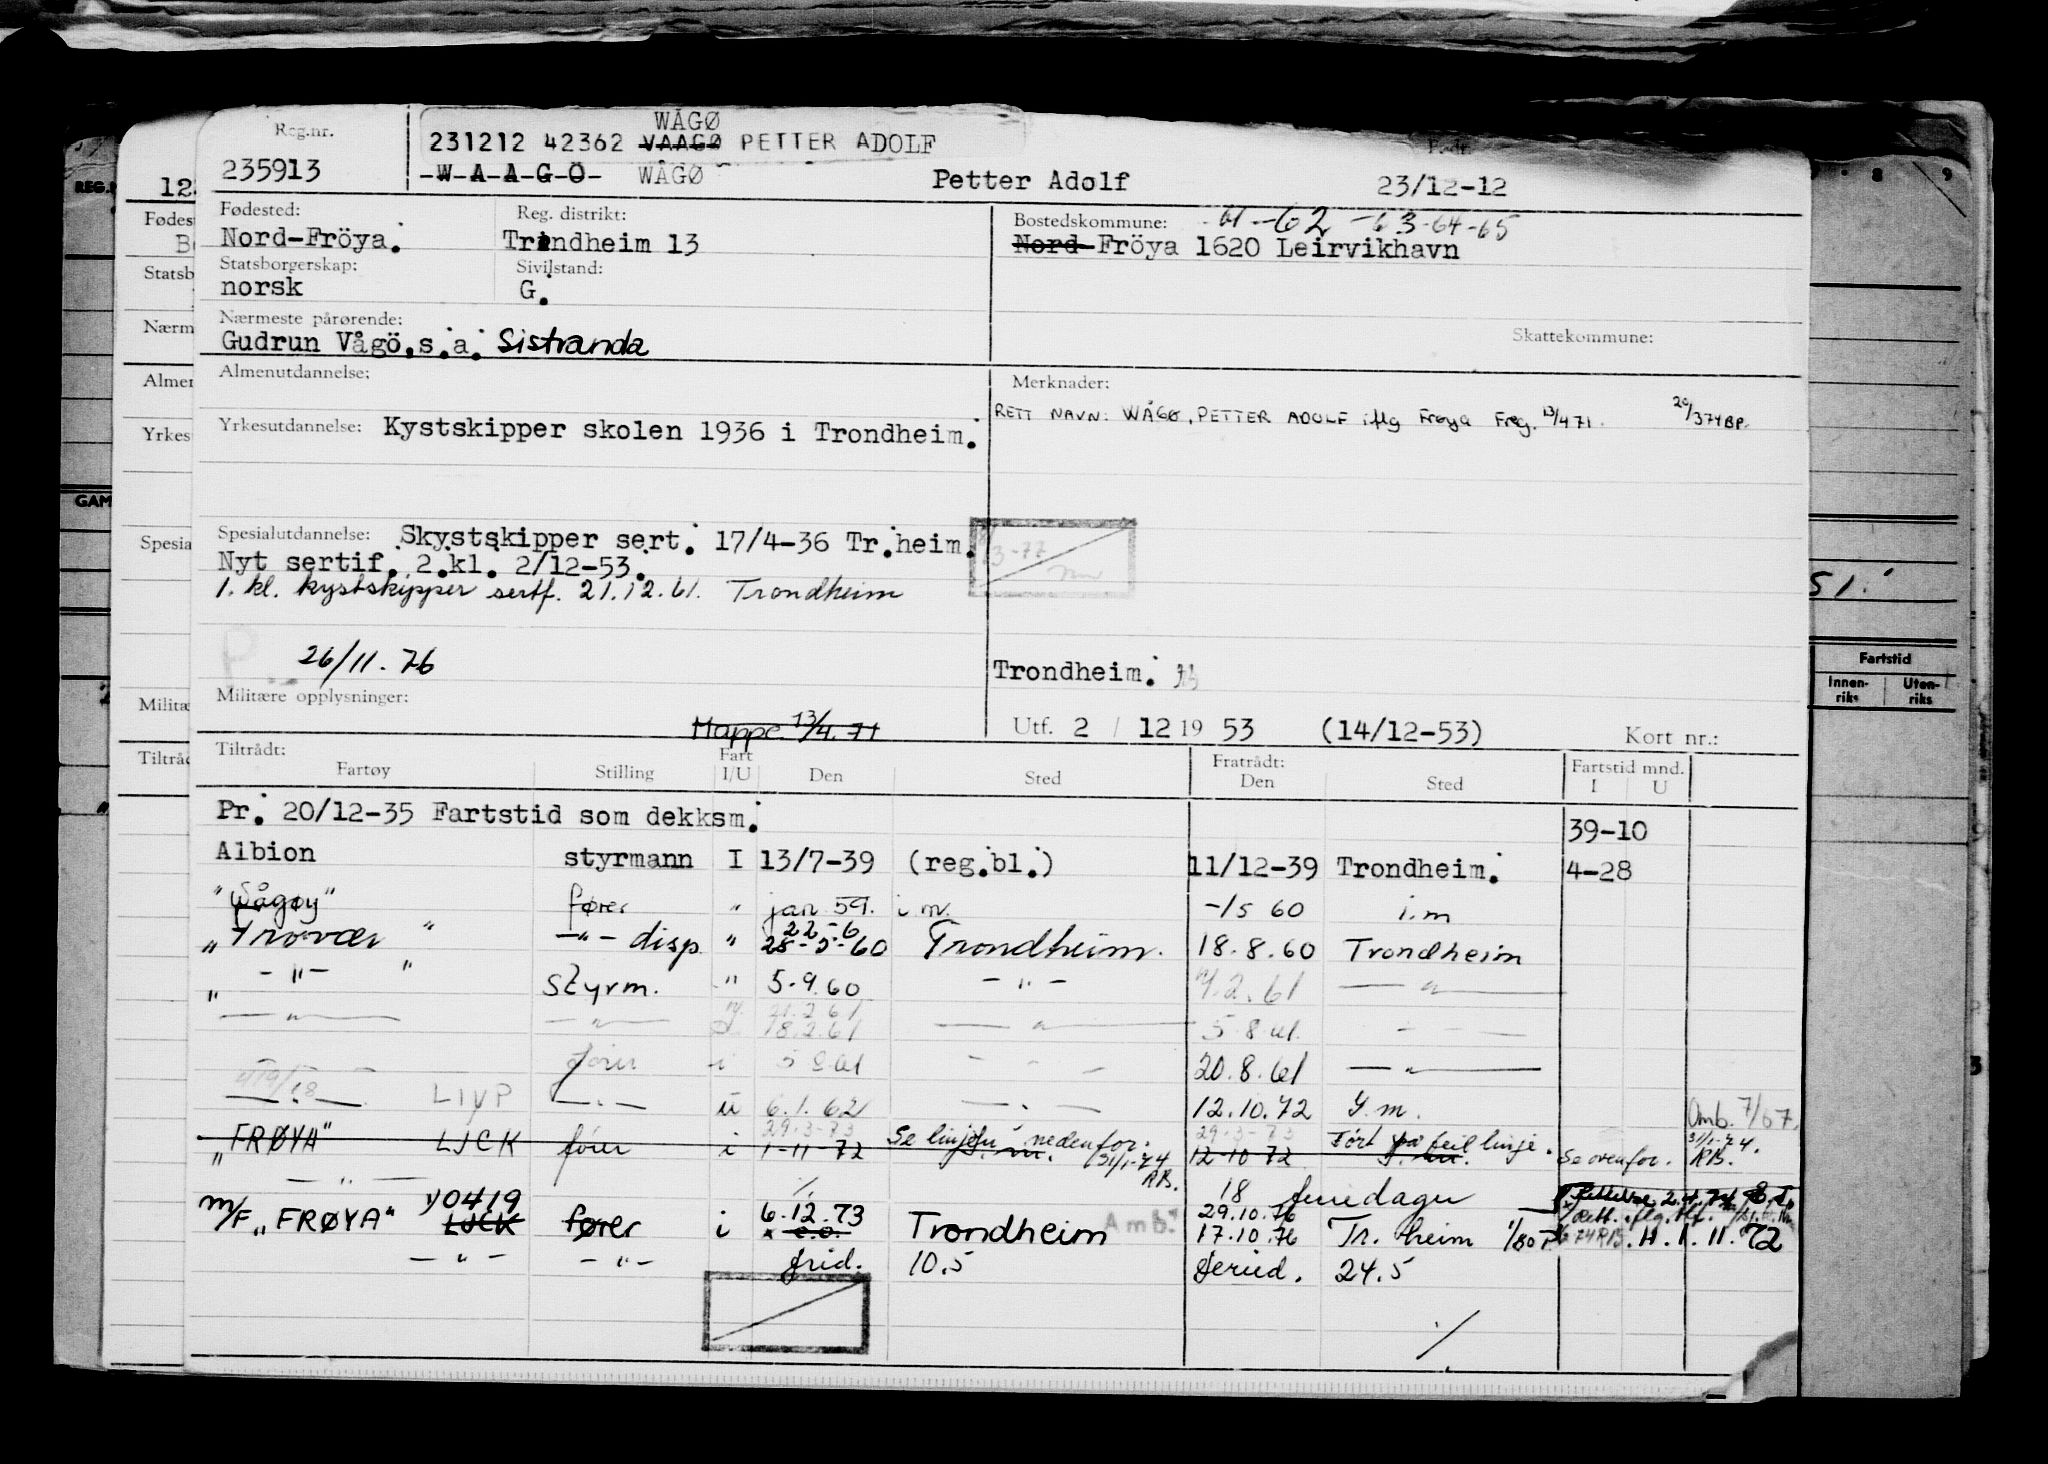 WÅGØ
Reg.nr. 231212 42362 VAAGØ PETTER ADOLF
235913 -W-A-A-G-O- WÅGØ Petter Adolf 23/12-12
Fødested: Reg. distrikt: Bostedskommune: -61-62-63-64-65
Nord-Fröya. Trondheim 13 Nord-Fröya 1620 Leirvikhavn
Statsborgerskap: Sivilstand:
norsk G.
Nærmeste pårørende: Skattekommune:
Gudrun Vågö.s.a. Sistranda
Almenutdannelse: Merknader:
RETT NAVN: WÅGØ, PETTER ADOLF iflg Frøya Freg. 13/4 71. 20/3 74 BP.
Yrkesutdannelse: Kystskipper skolen 1936 i Trondheim.
Spesialutdannelse: Skystskipper sert. 17/4-36 Tr.heim.
Nyt sertif. 2.kl. 2/12-53.
1. kl. kystskipper sertf. 21.12.61. Trondheim
26/11.76
Trondheim.
Militære opplysninger:
Mappe 13/4.71 Utf. 2 / 12 19 53 (14/12-53) Kort nr.:
Tiltrådt: Fart Fratrådt: Fartstid mnd.
Fartøy Stilling I/U Den Sted Den Sted I U
Pr. 20/12-35 Fartstid som dekksm. 39-10
Albion styrmann I 13/7-39 (reg.bl.) 11/12-39 Trondheim. 4-28
"Vågøy" fører " jan 59. i m. -/5 60 i.m
22-6
"Frøvær" -"- disp. " 28-5-60 Trondheim. 18.8.60 Trondheim
" -"- " Styrm. " 5.9.60 -"- 2.61 -"-
21.2.61
-"- -"- 18.2.61 -"- 5.8.61. - - -
fører i 5 8 61 - - - 20.8.61 -"-
LIVP -.- u 6.1.62 -.- 12.10.72 Y.m. Omb. 7/67.
29-3-73 29-3-73 31/1-74.
"FRØYA" LJCK fører i 1-11-72 Se linjen nedenfor. 31/1-74 RB. 12-10 72 Ført på feil linje. Se ovenfor. RB.
-"- 18
6.12.73 29.10.76
M/F "FRØYA" 0419 LJCK fører i Trondheim Amb. 17.10.76 Tr. heim 1.11.72
-"- -"- frid. 10.5 feried. 24.5
REG.
Fartstid
Innenriks Utenriks
8 9
51.